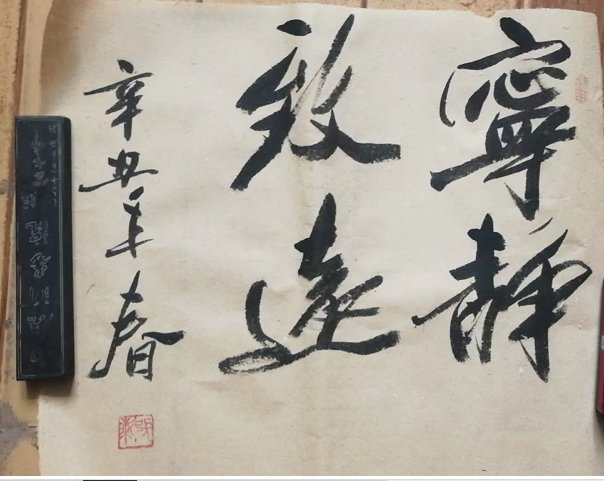 寧靜
致遠
辛丑年春